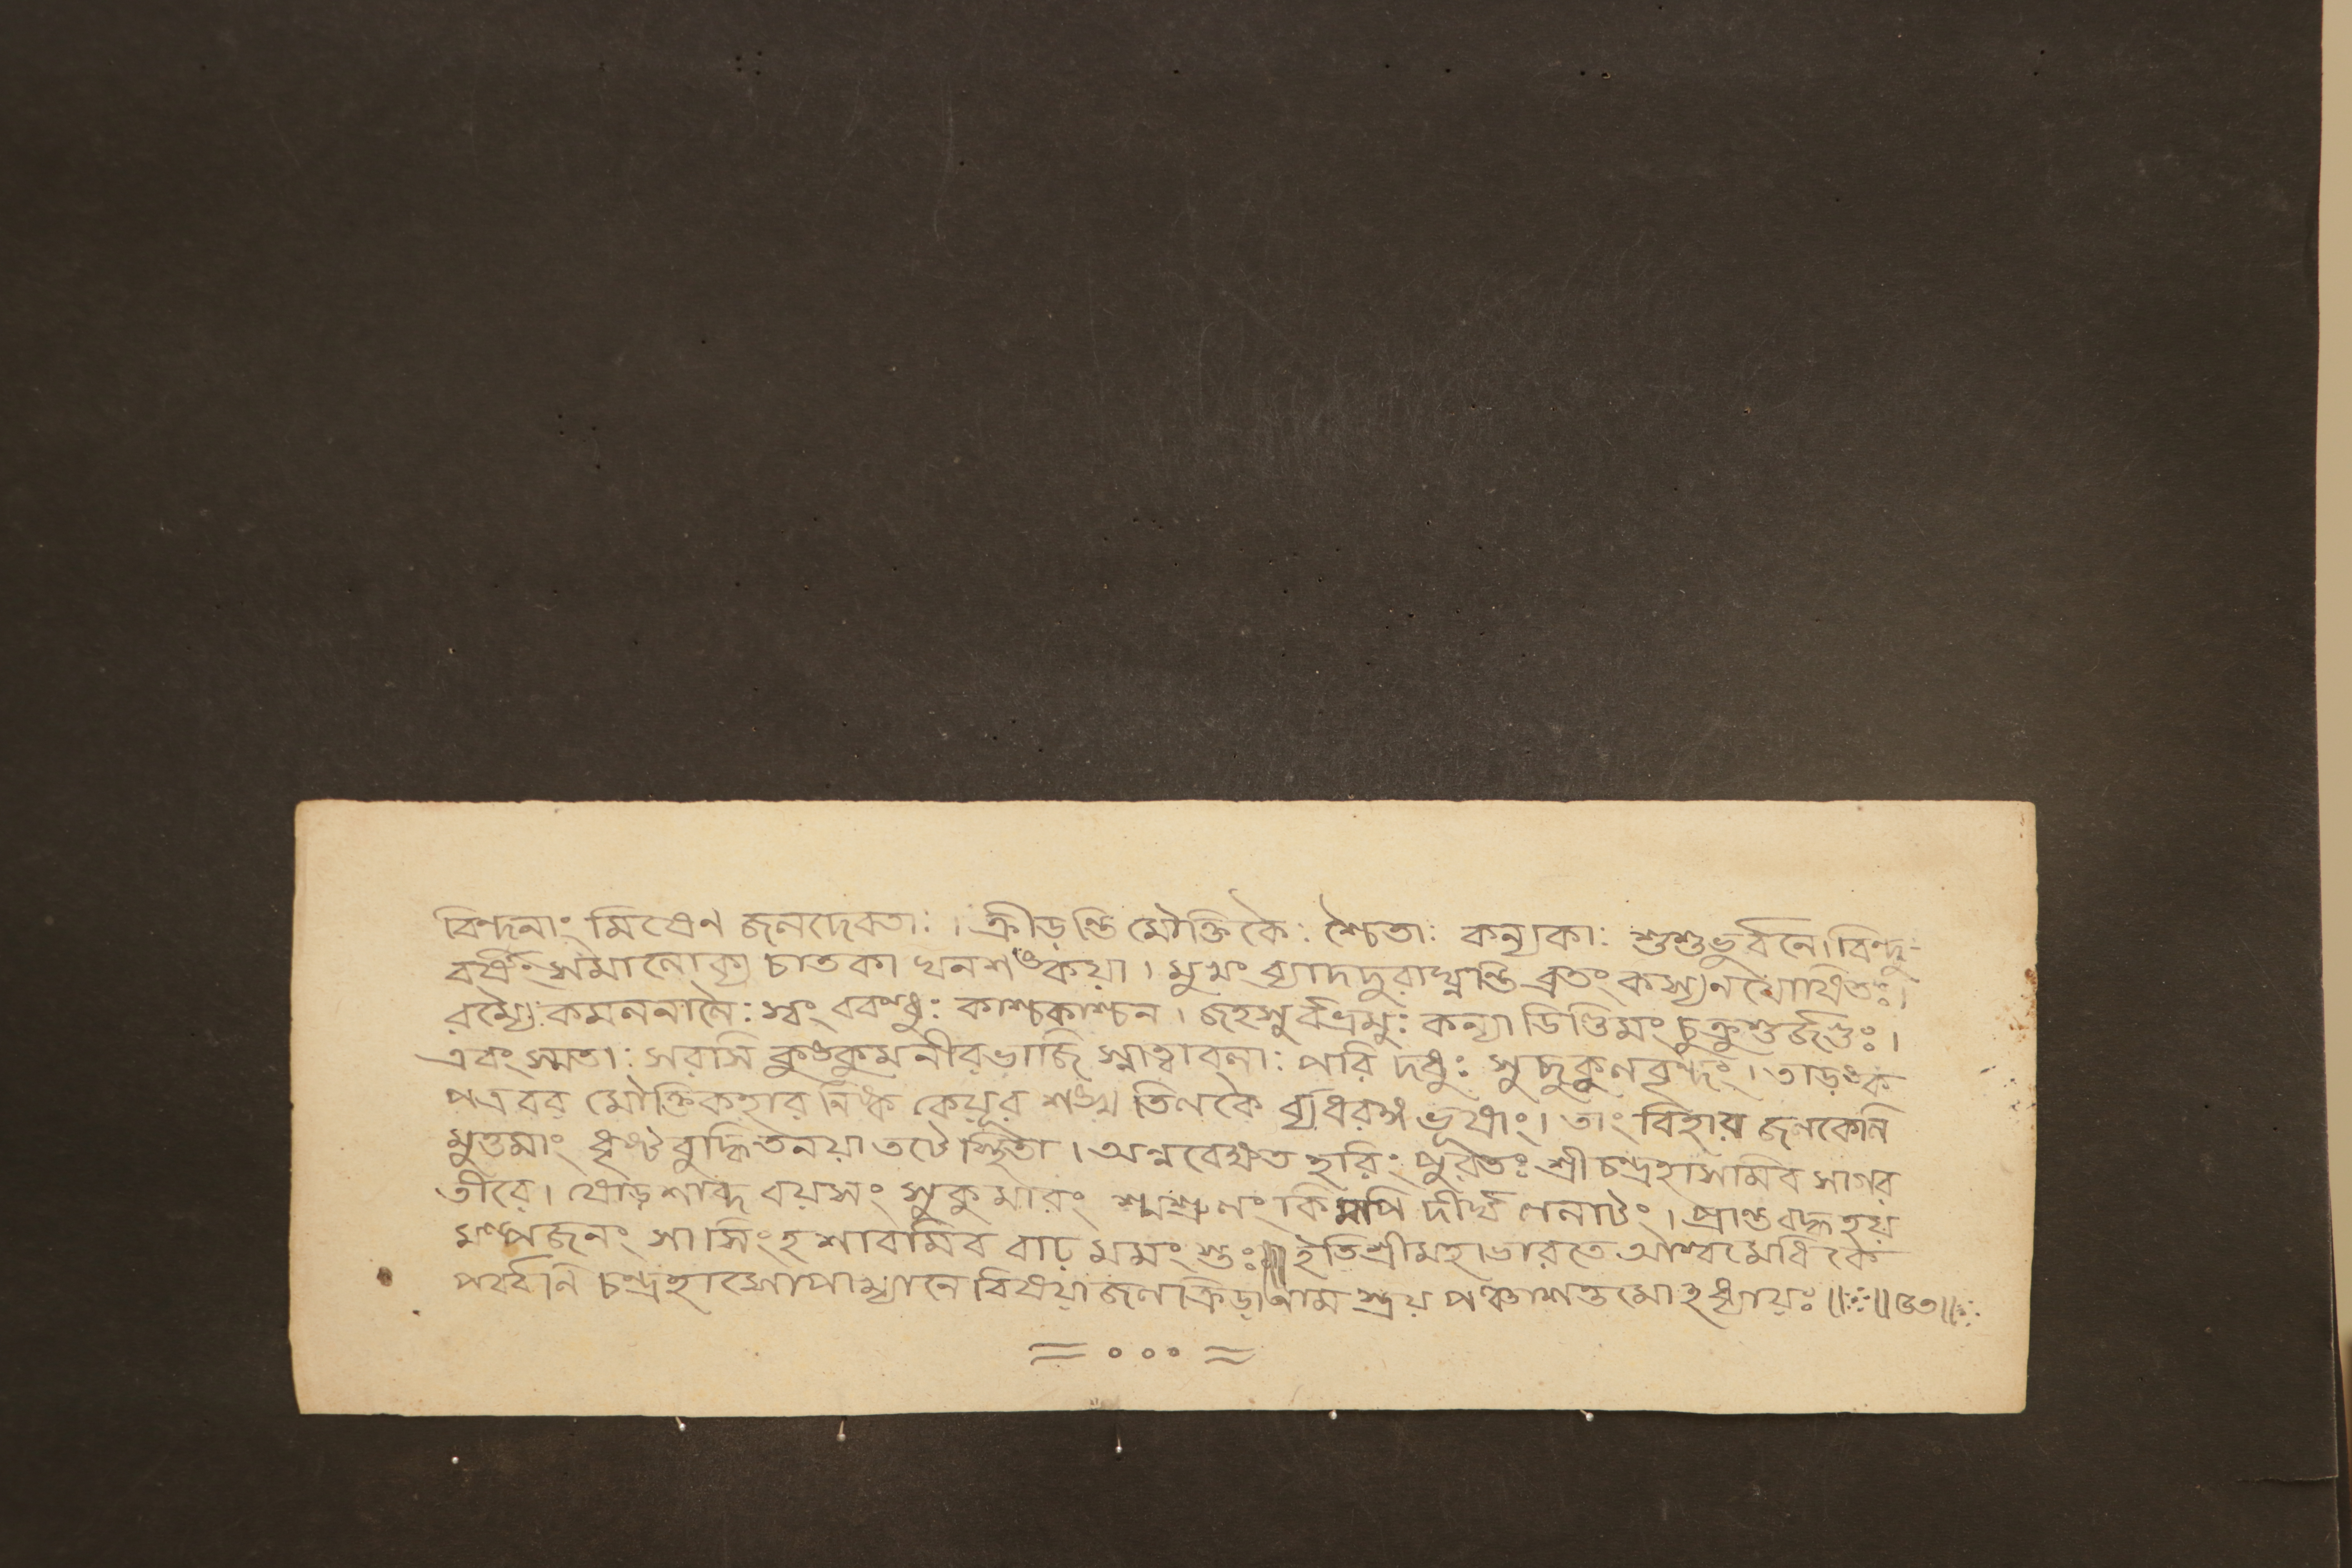 বিন্দুনাং মিষেণ জলদেবতাঃ । ক্রীড়ন্তি মৌক্তিকৈঃ শ্চৈতাঃ কন্যকাঃ শুশুভুর্বনে। বিন্দু-
বর্ষৈঃ সমালোক্য চাতকা ঘনশঙ্কয়া । মুখং ব্যাদদুরাঘ্নন্তি ব্রতং কস্য ন যোষিতঃ।
রম্যৈঃ কমলনালৈঃ স্বং ববন্ধুঃ কাশ্চকাশ্চন । জহসুর্বভ্রমুঃ কন্যা ডিণ্ডিমং চুক্রুশুর্জগুঃ ।
এবং স্মতাঃ সরসি কুঙ্কুমনীরভাজি স্নাত্বাবলাঃ পরি দধুঃ সুদুকুলবৃন্দং । তাড়ঙ্ক
পত্রবর মৌক্তিকহার নিষ্ক কেয়ূর শঙ্খ তিলকৈ র্ব্যধরঙ্গ ভূষাং । তাং বিহায় জলকেলি
মুত্তমাং ধৃষ্ট বুদ্ধিতনয়া তটে স্থিতা । অন্ববেক্ষত হরিং পুরতঃ শ্রীচন্দ্রহাসমিব সাগর
তীরে। ষোড়শাব্দ বয়সং সুকুমারং শ্মশ্রুলং কিমপি দীর্ঘ ললাটং । প্রান্তবদ্ধ হয়
মল্পজনং সা সিংহ শাবমিব বাঢ় মমংস্তঃ॥ ইতি শ্রীমহাভারতে আশ্বমেধিকে
পর্ব্বনি চন্দ্রহাসোপাখ্যানে বিষয়া জলক্রিড়া নাম ত্রয় পঞ্চাশত্তমোহধ্যায়ঃ ॥ঃ॥ ৫৩॥ঃ
= ০ ০ ০ =